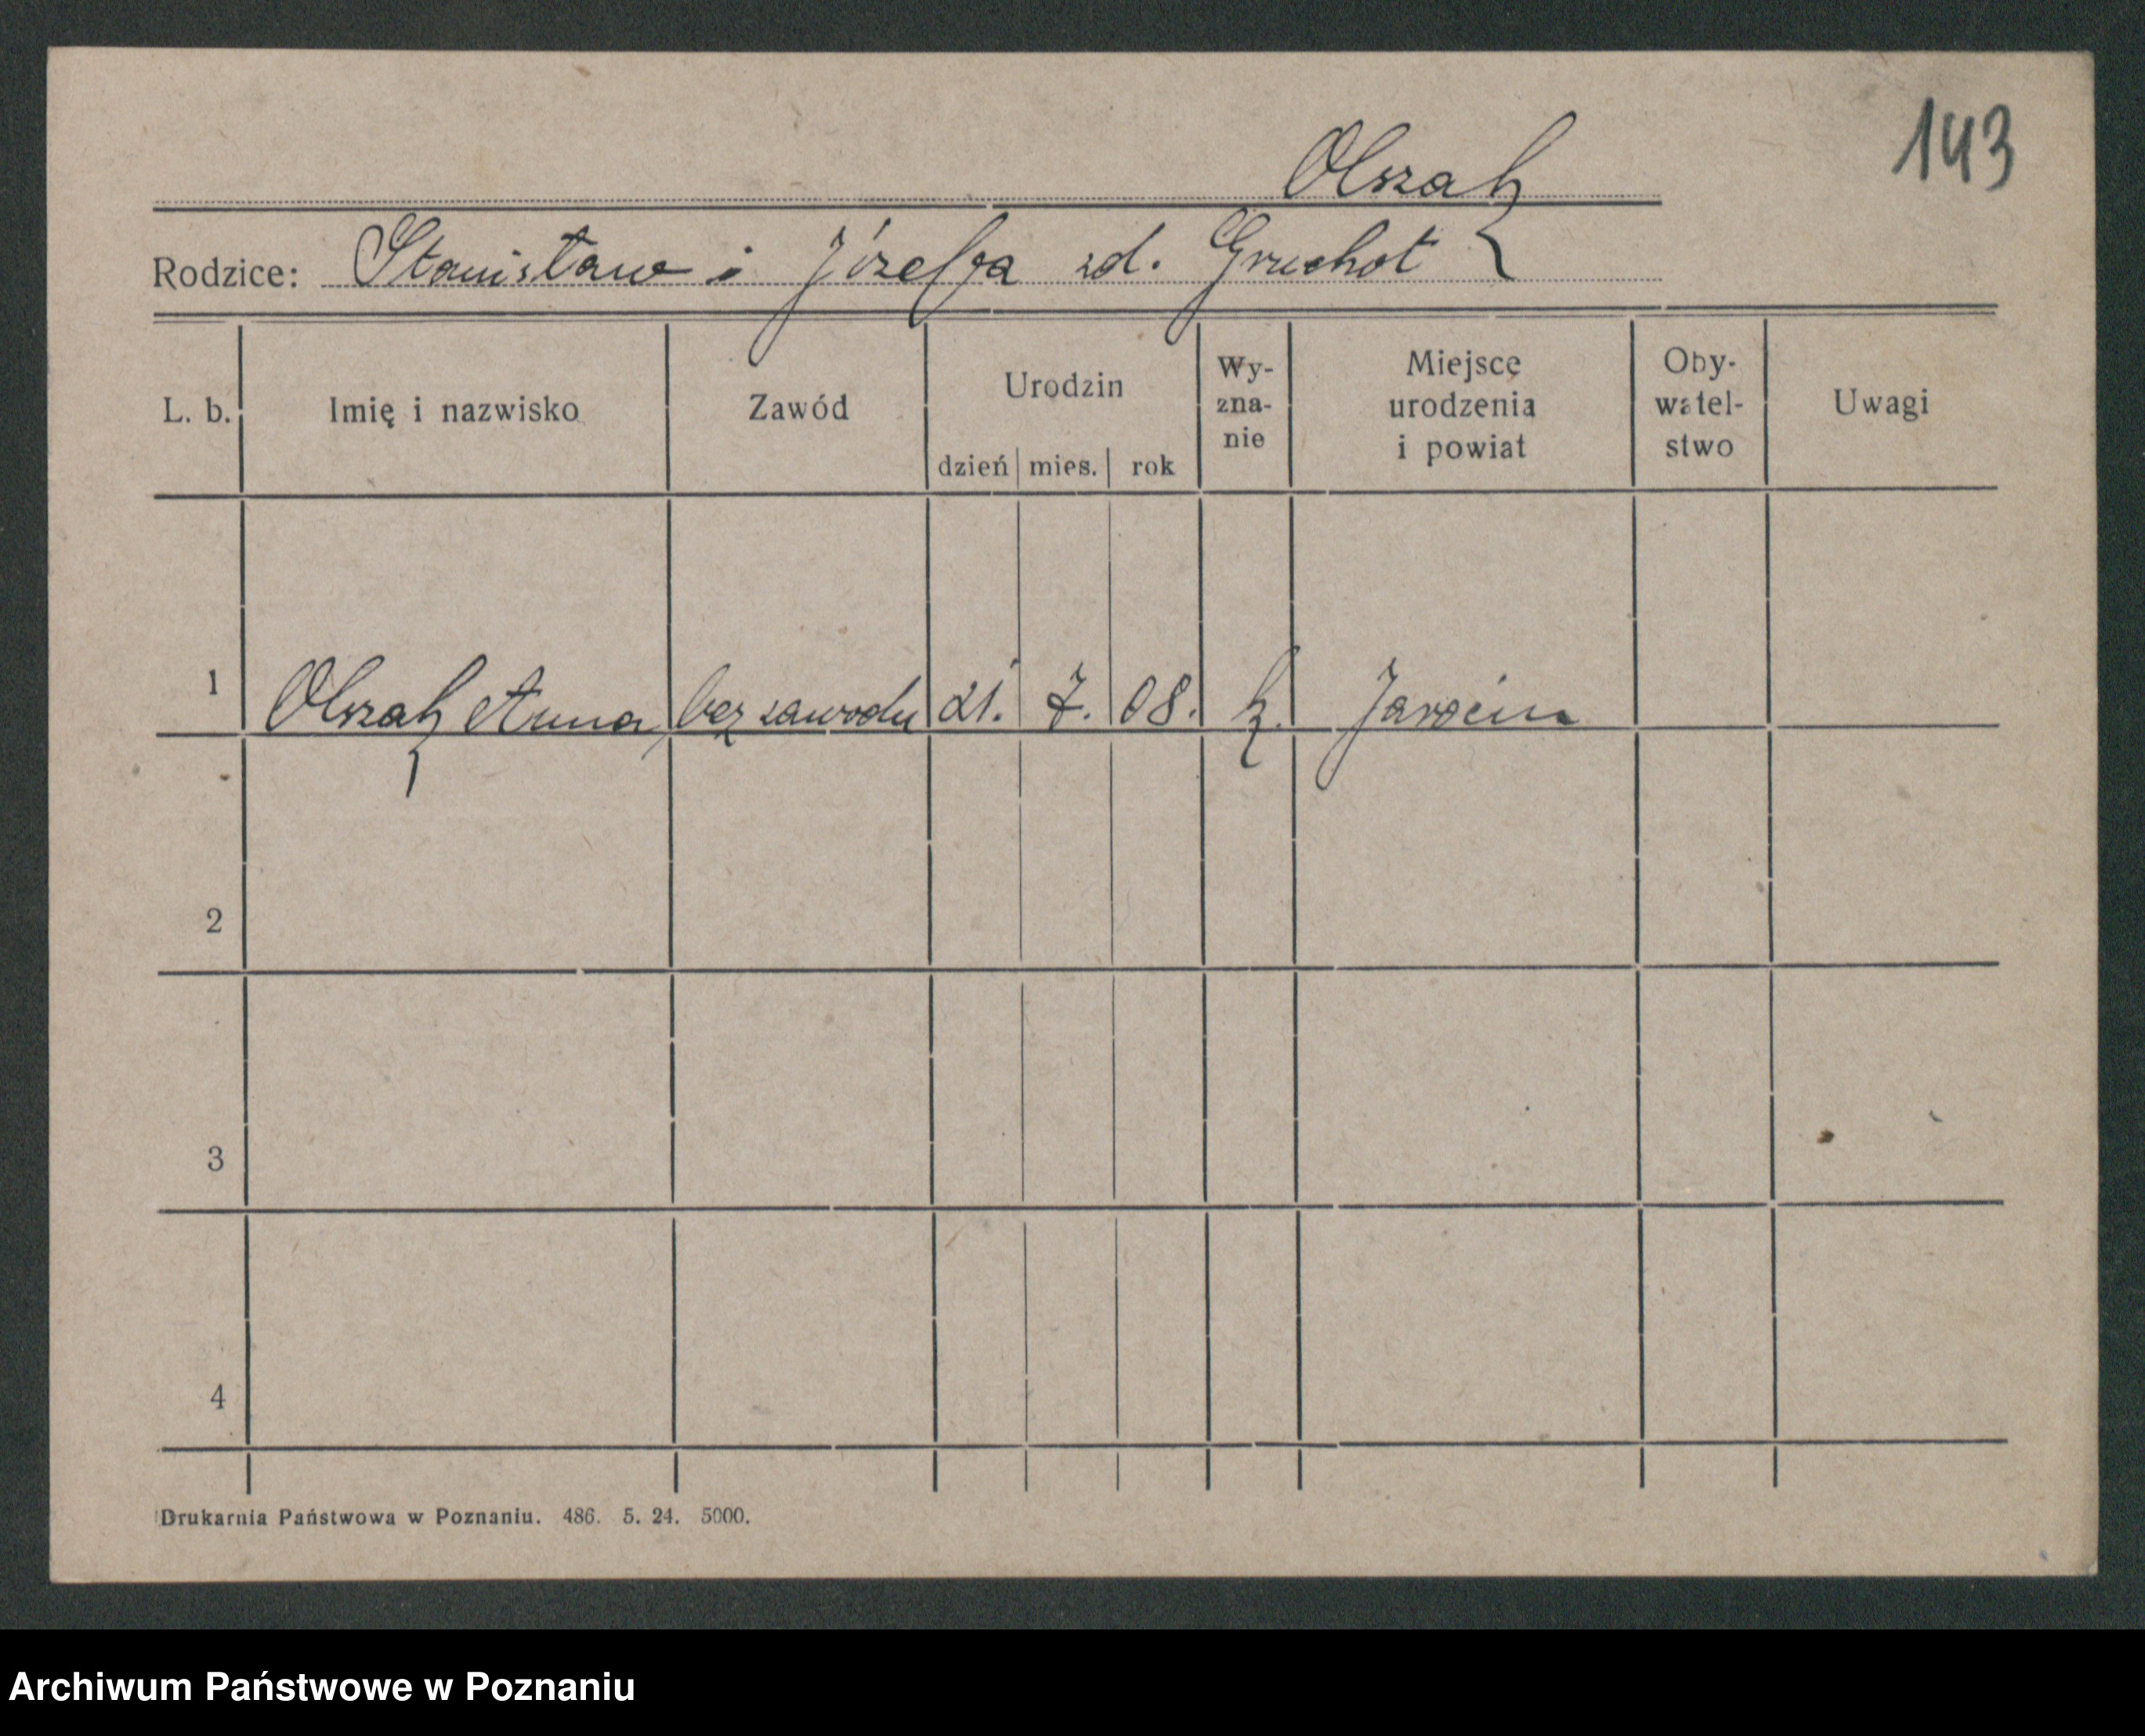 143
Olszak
Rodzice: Stanisław i Józefa zd. Gruchot
L. b. Imię i nazwisko Zawód Urodzin dzień mies. rok Wy-zna-nie Miejsce urodzenia i powiat Oby-watel-stwo Uwagi
1 Olszak Anna bez zawodu 21. 7. 08. k. Jarocin
2
3
4
Drukarnia Państwowa w Poznaniu. 486. 5. 24. 5000.
Archiwum Państwowe w Poznaniu